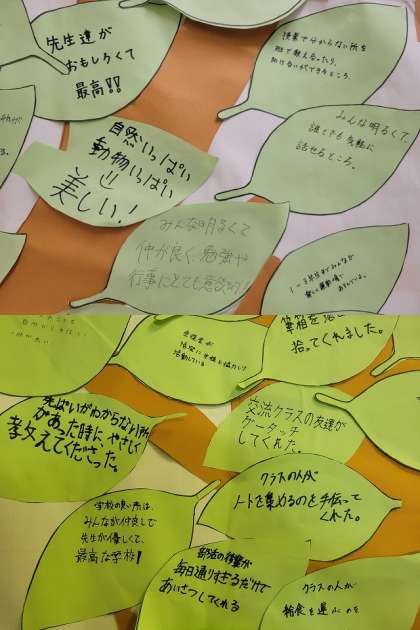 先生達が
おもしろくて
最高!!
授業で分からない所を
班で教えあったり、
助け合いができるところ。
みんな明るくて、
誰とでも気軽に
話せるところ。
自然いっぱい
動物いっぱい
美しい!
みんな明るくて
仲が良く、勉強や
行事にとても意欲的!
筆箱を落
拾ってくれました。
先ぱいがわからない所
があった時に、やさしく
教えてくださった。
交流クラスの友達が
グータッチ
してくれた。
クラスの人が
ノートを集めるのを手伝って
くれた。
学校の良い所は、
みんなが仲良しで
先生が優しくて、
最高な学校!
部活の後輩が
毎日通りすぎるだけで
あいさつしてくれる
クラスの人が
給食を運ぶのを